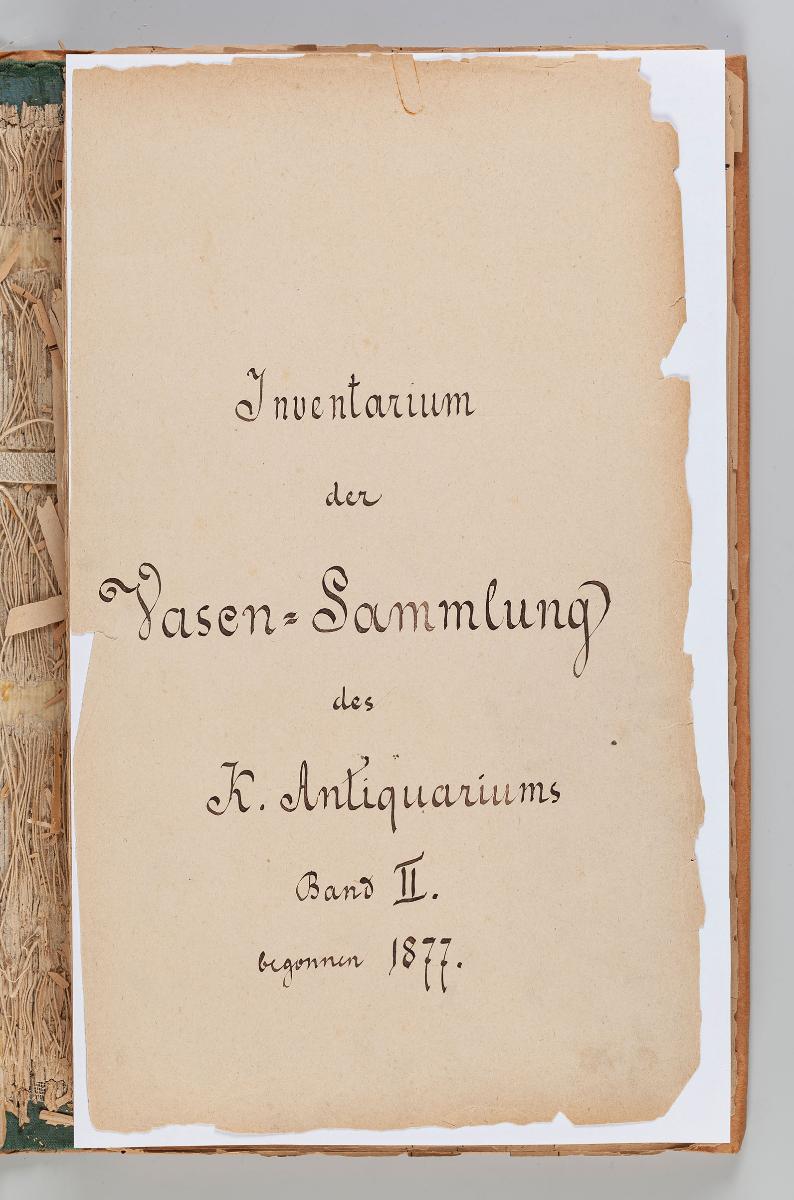 Inventarium
der
Vasen=Sammlung
des
K. Antiquariums
Band II.
begonnen 1877.